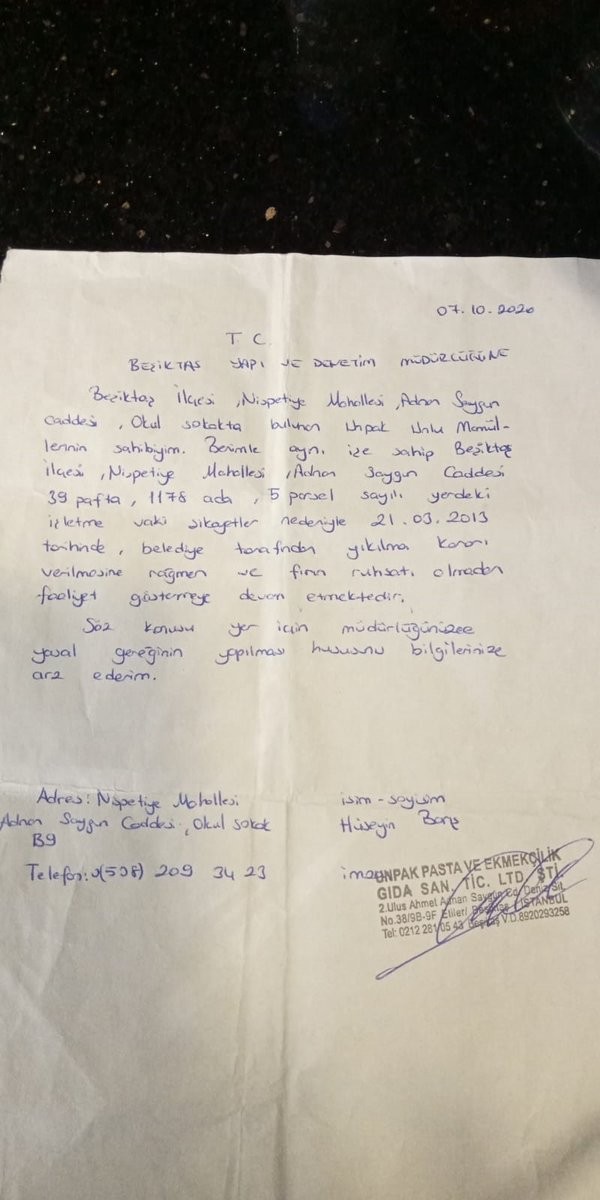 07.10.2020
T C.
BEŞİKTAŞ YAPI VE DENETİM MÜDÜRLÜĞÜNE
Beşiktaş İlçesi, Nispetiye Mahallesi, Adnan Saygun
Caddesi, Okul sokakta bulunan Unpak Unlu Mamül-
lerinin sahibiyim. Benimle aynı işe sahip Beşiktaş
ilçesi, Nispetiye Mahallesi, Adnan Saygun Caddesi
39 pafta, 1178 ada, 5 parsel sayılı yerdeki
işletme vaki şikayetler nedeniyle 21.03.2013
tarihinde, belediye tarafından yıkılma kararı
verilmesine rağmen ve fırın ruhsatı olmadan
faaliyet göstermeye devam etmektedir.
Söz konusu yer için müdürlüğünüzce
yasal gereğinin yapılması hususunu bilgilerinize
arz ederim.
Adres: Nispetiye Mahallesi
Adnan Saygun Caddesi, Okul sokak
B9
Telefon: 0(538) 209 34 23
isim-soyisim
Hüseyin Barış
imza
UNPAK PASTA VE EKMEKÇİLİK
GIDA SAN. TİC. LTD. ŞTİ.
2.Ulus Ahmet Adnan Saygun Cd. Deniz Sit.
No.38/9B-9F Etiler/ İSTANBUL
Tel: 0212 281 05 43 V.D.8920293258